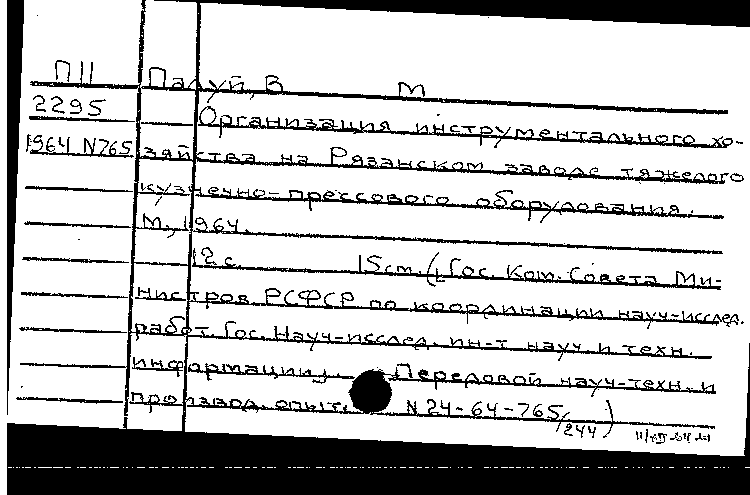 П11 Палуй, В М
2295 Организация инструментального хо-
1964 N765 зяйства на Рязанском заводе тяжелого
кузнечно-прессового оборудования.
М., 1964.
12 с. 15 см. (Гос. Ком. Совета Ми-
нистров РСФСР по координации науч-исслед.
работ. Гос. Науч-исслед. ин-т науч. и техн.
информации). Передовой науч-техн. и
производ. опыт. N 24-64-765/244)